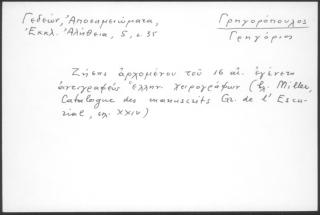 Γεδεών, Ἀποσημειώματα,
Ἐκκλ. Ἀλήθεια, 5, σ. 35
Γρηγορόπουλος
Γρηγόριος
Ζήσας ἀρχομένου τοῦ 16 αἰ. ἐγένετο
ἀντιγραφεὺς ἑλλην. χειρογράφων (βλ. Miller,
Catalogue des manuscrits Gr. de l' Escu-
rial, σελ. XXIV)